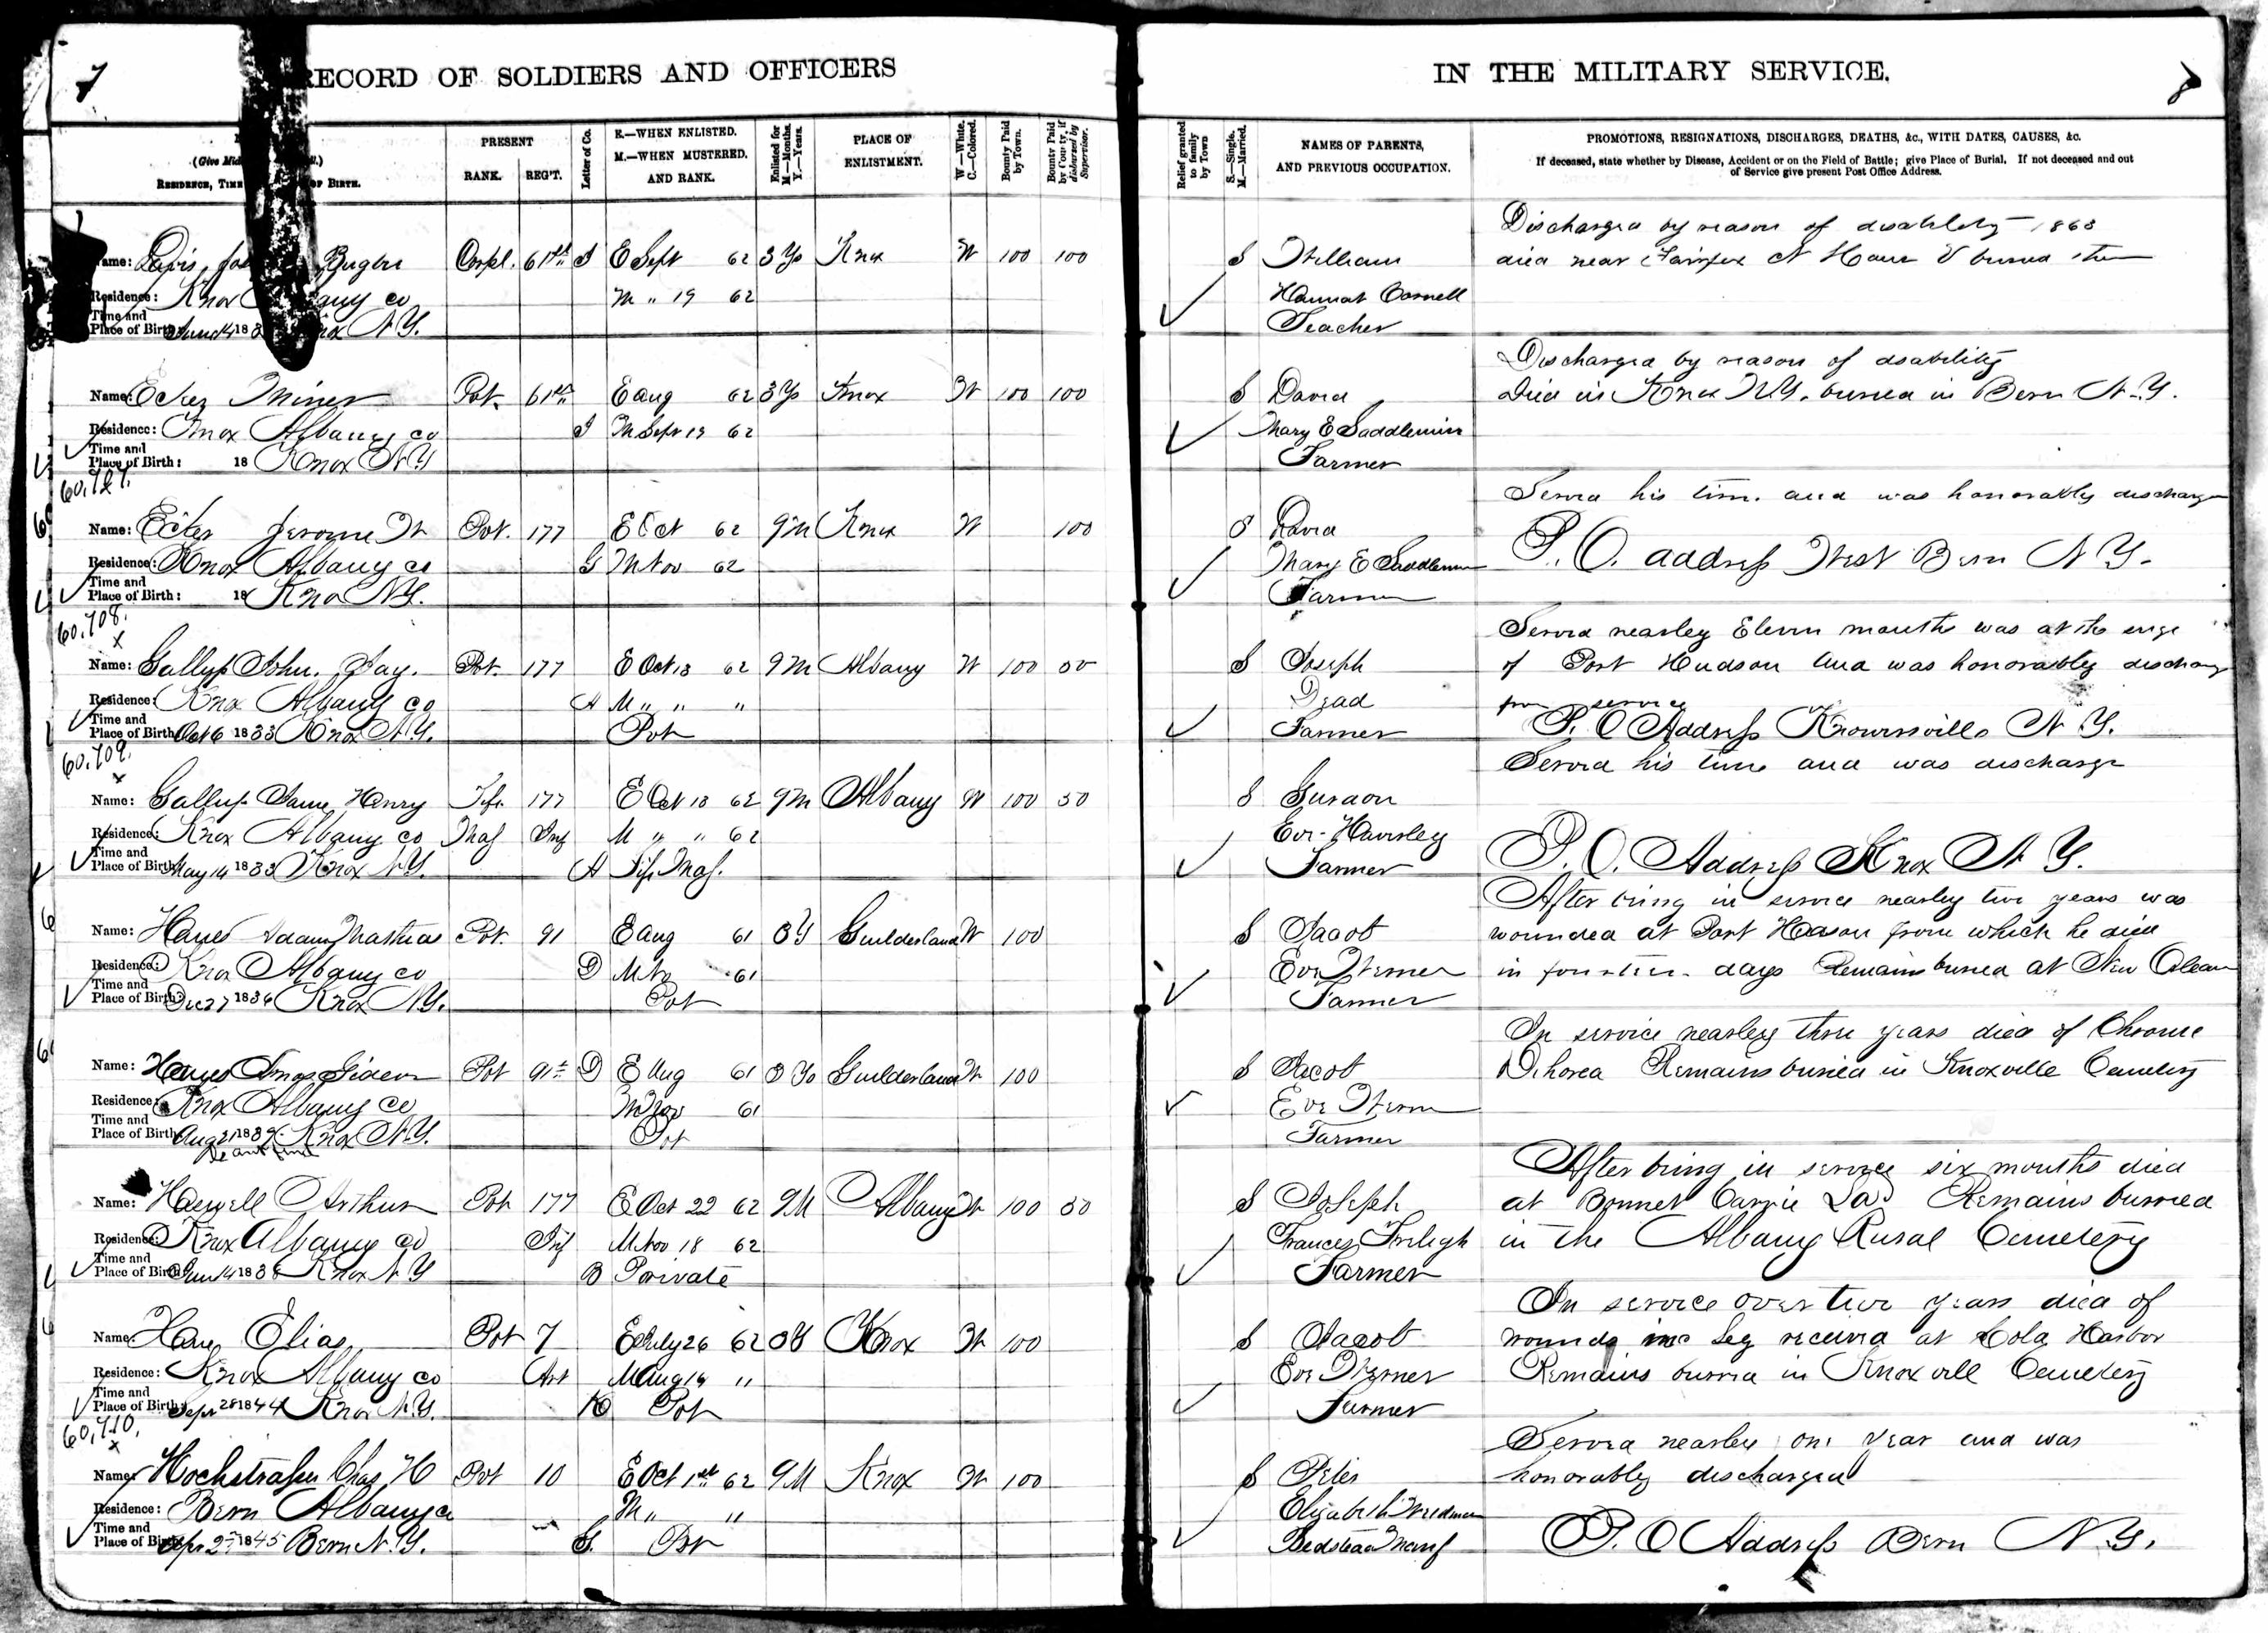 7
RECORD OF SOLDIERS AND OFFICERS
(Give Mid
RESIDENCE, TIME OF BIRTH.
PRESENT
RANK. REG'T.
Letter of Co.
E.—WHEN ENLISTED.
M.—WHEN MUSTERED.
AND RANK.
Enlisted for
M—Months.
Y.—Years.
PLACE OF
ENLISTMENT.
W—White.
C.—Colored.
Bounty Paid
by Town.
Bounty Paid
by County, if
disbursed by
Supervisor.
Name: Davis, Rugen Corpl. 61st E Sept 62 3 Ys Knox W 100 100
Residence: Knox Albany co M " 19 62
Time and
Place of Birth: June 14 18 Knox N Y.
Name: Ecker Miner Pvt. 61st E Aug 62 3 Ys Knox W 100 100
Residence: Knox Albany co I M Sept 19 62
Time and
Place of Birth: 18 Knox N Y
60,727.
Name: Ecker Jerome W Pvt. 177 E Oct 62 9 M Knox W 100
Residence: Knox Albany co G M Nov 62
Time and
Place of Birth: 18 Knox N Y.
60,708.
x
Name: Gallup John. Jay. Pvt. 177 E Oct 13 62 9 M Albany W 100 50
Residence: Knox Albany co A M " " "
Time and
Place of Birth: Oct 6 1833 Knox N.Y. Pvt
60,709.
x
Name: Gallup Henry Fife 177 E Oct 13 62 9 M Albany W 100 50
Residence: Knox Albany co Maj Inf M " " 62
Time and
Place of Birth: May 14 1833 Knox N.Y. A Fife Maj.
Name: Hanes Adam Mathias Pvt. 91 E Aug 61 3 Y Guilderland W 100
Residence: Knox Albany co D M Nv 61
Time and
Place of Birth: Dec 27 1836 Knox N.Y. Pvt
Name: Hanes Amos Gideon Pvt 91st D E Aug 61 3 Ys Guilderland W 100
Residence: Knox Albany co M Nov 61
Time and
Place of Birth: Aug 21 183 Knox N.Y. Pvt
Name: Haswell Arthur Pvt 177 E Oct 22 62 9 M Albany W 100 50
Residence: Knox Albany co Inf M Nov 18 62
Time and
Place of Birth: 14 183 Knox N Y B Private
Name: Hane Elias Pvt 7 E July 26 62 3 Y Knox W 100
Residence: Knox Albany co Art M Aug 14 "
Time and
Place of Birth: Sept 28 1844 Knox N.Y. K Pvt
60,710.
x
Name: Hochstrasser Chas. H Pvt 10 E Oct 1st 62 9 M Knox W 100
Residence: Bern Albany co M " "
Time and
Place of Birth: Apr 2nd 1845 Bern N.Y. G. Pvt
IN THE MILITARY SERVICE.
8
Relief granted
to family
by Town
S.—Single.
M.—Married.
NAMES OF PARENTS,
AND PREVIOUS OCCUPATION.
PROMOTIONS, RESIGNATIONS, DISCHARGES, DEATHS, &c., WITH DATES, CAUSES, &c.
If deceased, state whether by Disease, Accident or on the Field of Battle; give Place of Burial. If not deceased and out
of Service give present Post Office Address.
Discharged by reason of disability 1863
S William died near Fairfax buried
Hannah Cornell
Teacher
Discharged by reason of dsability
S David Died in Knox N.Y. buried in Bern N.Y.
Mary E Saddlemire
Farmer
Served his time and was honorably discharge
S David
Mary E Saddlemire P. O. address West Bern N Y.
Farmer
Served nearley Eleven months was at the seige
S Joseph of Port Hudson and was honorably discharg
Dead from service
Farmer P. O Address Knowersville N Y.
Served his time and was discharge
S Gurdon
Eve
Farmer P. O. Address Knox N Y.
After being in service nearley two years was
S Jacob wounded at Port Hudson from which he died
Eve Werner in fourteen days Remains buried at New Orlean
Farmer
In service nearley three years died of Chronic
S Jacob Dihorea Remains buried in Knoxville Cemetery
Eve Werner
Farmer
After being in service six months died
S Joseph at Bonnet Carrie La. Remains burried
Frances Freligh in the Albany Rural Cemetery
Farmer
In service over two years died of
S Jacob wounds in Leg received at Cold Harbor
Eve Werner Remains burried in Knoxvill Cemetery
Farmer
Served nearley one year and was
S Peter honorably discharged
Elizabeth Weidman
Bedstead Manf P. O Address Bern N.Y.